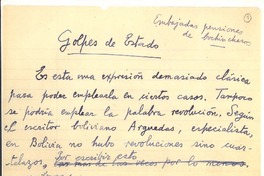 Embajadas pensiones
de
3
Golpes de Estado
Es esta una expresión demasiado clásica
para poder emplearla en ciertos casos. Tampoco
se podría emplear la palabra revolución. Según
el escritor boliviano Arguedas, especialista,
en Bolivia no hubo revoluciones sino cuar-
telazos. Por escribir esto